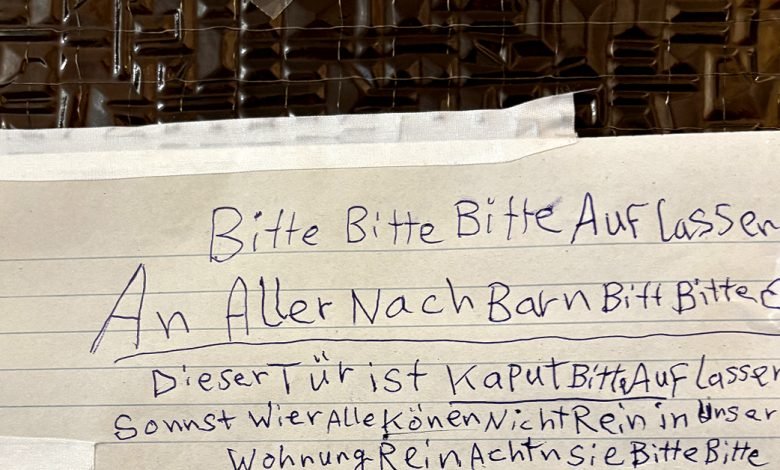 Bitte Bitte Bitte Auf lassen
An Aller Nach Barn Bitt Bitte
Dieser Tür ist Kaput Bitte Auf lassen
Sonnst Wier Alle Könen Nicht Rein in Unser
Wohnung Rein Achtn sie Bitte Bitte